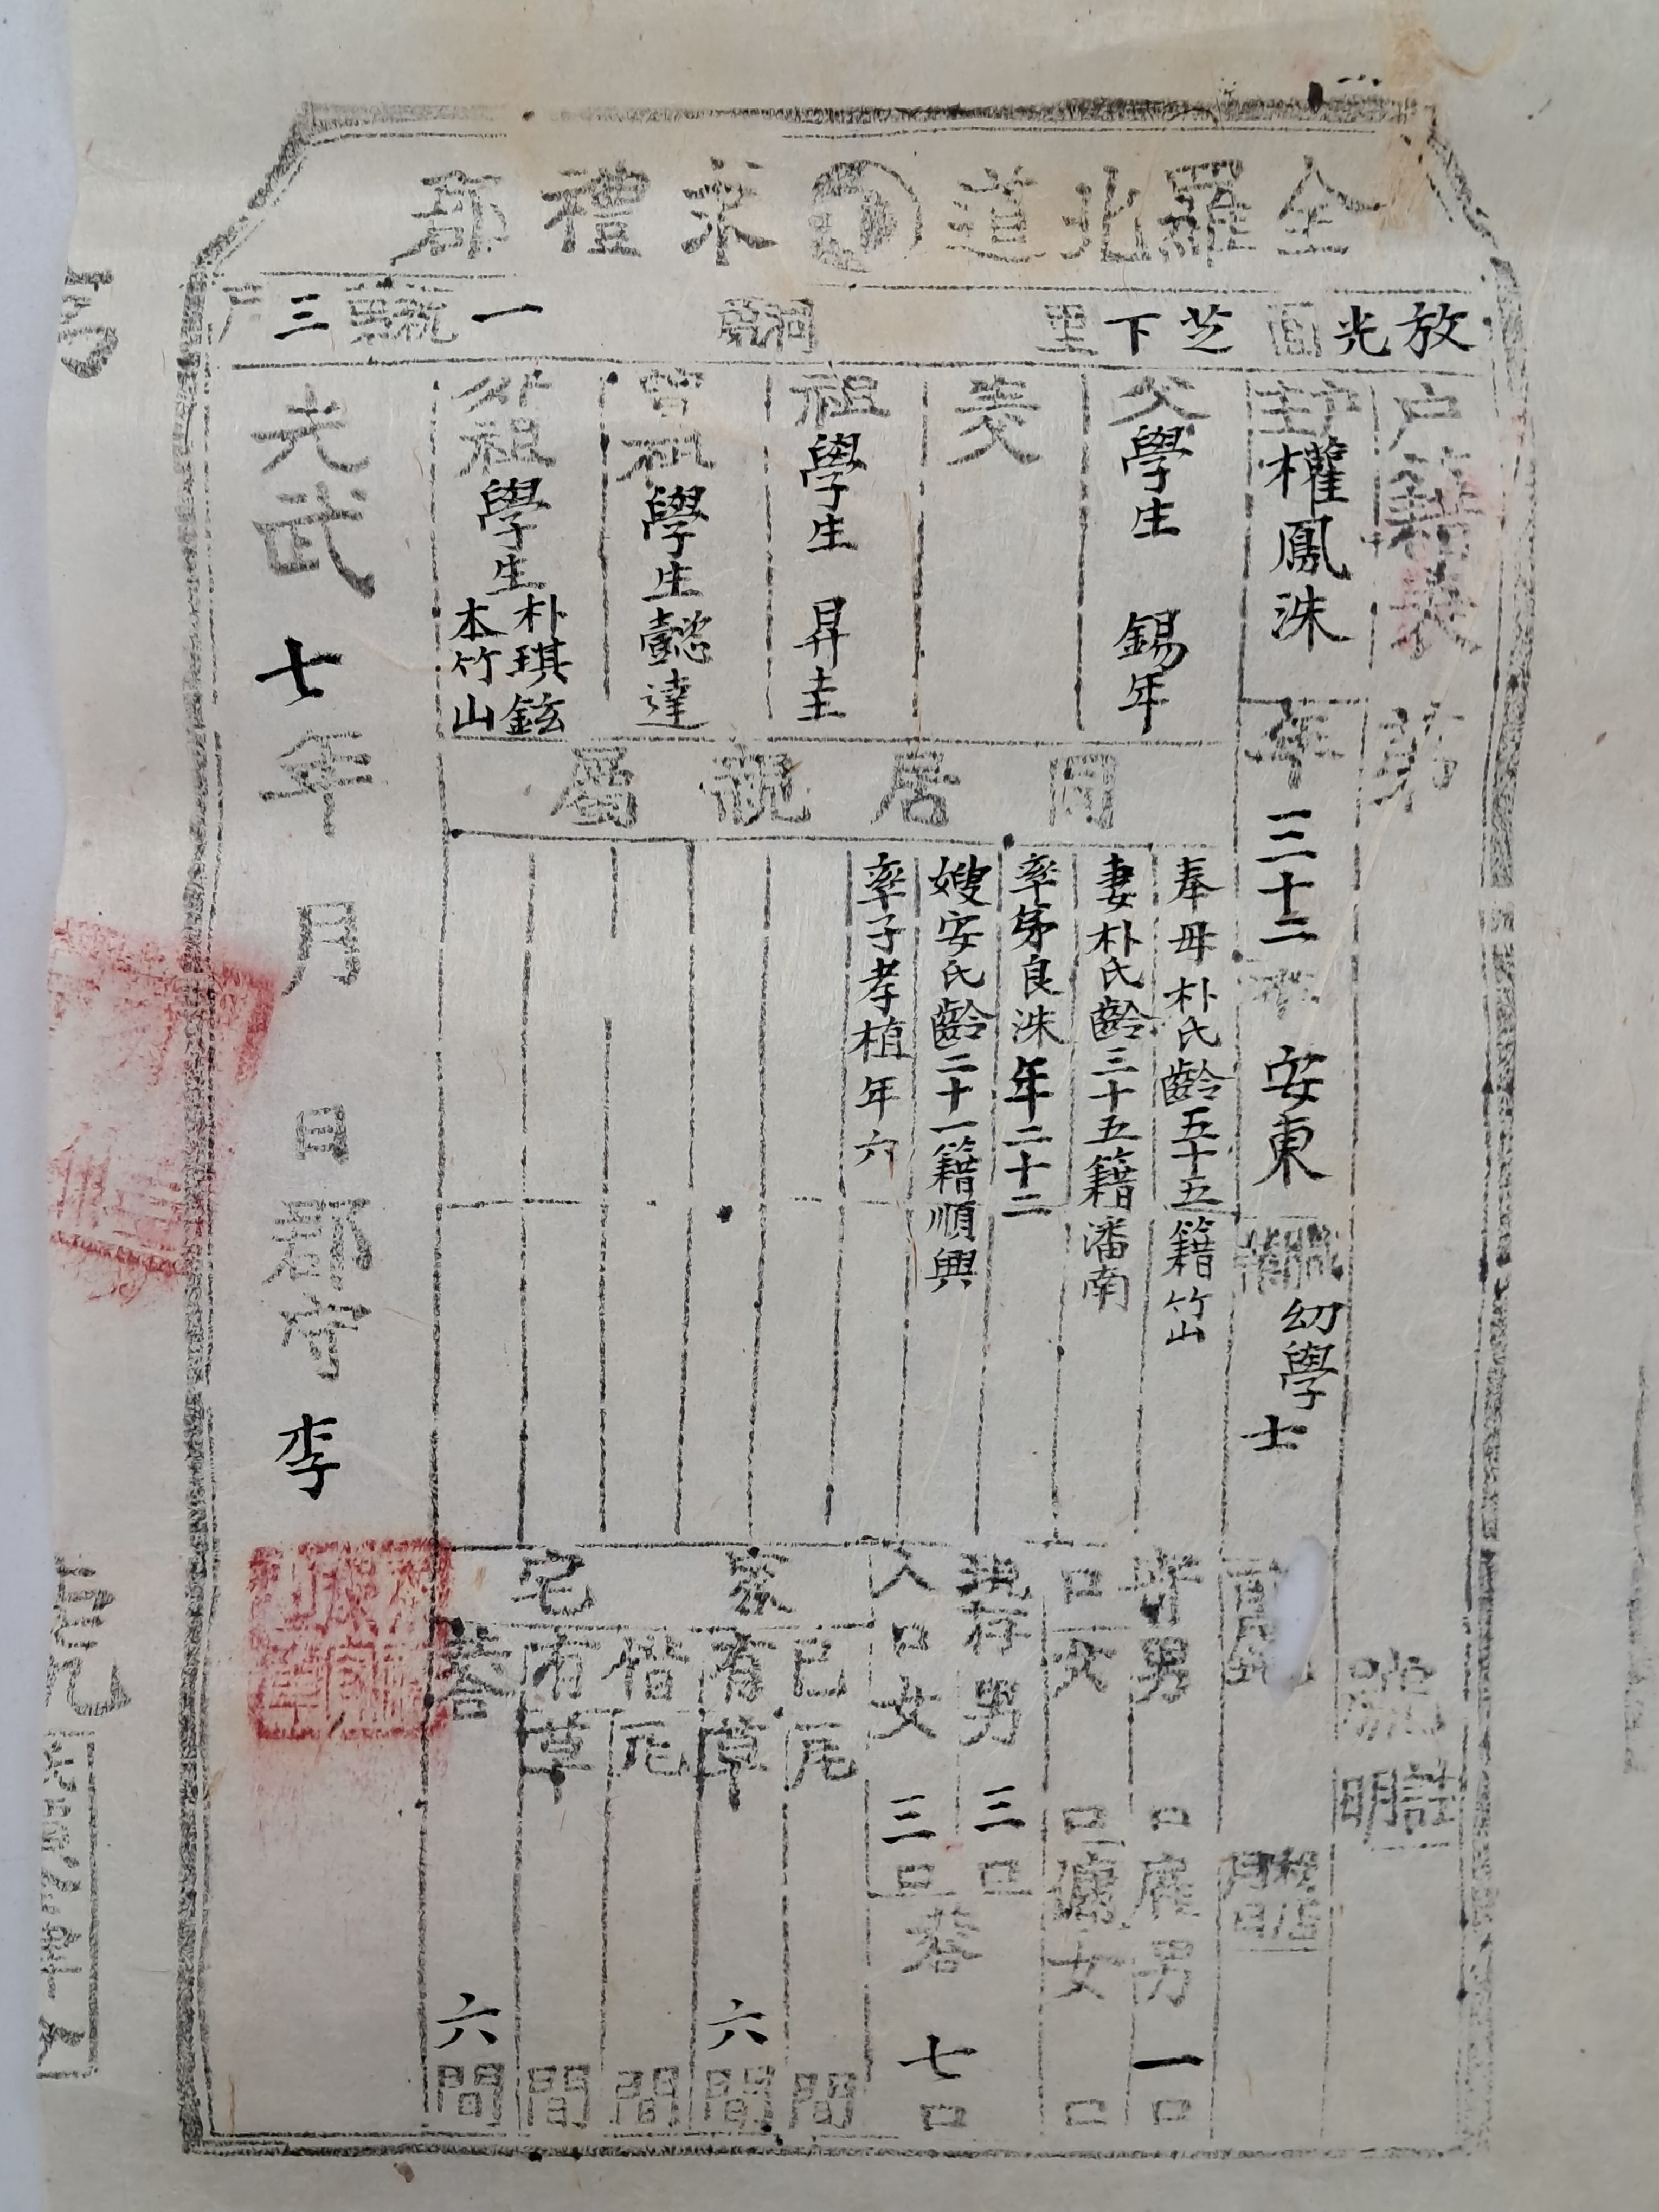 全羅北道求禮郡
放光面 芝下里 洞 一統 三戶
戶籍表 第 號
戶主 權鳳洙 年 三十二 本 安東 職業 幼學 士
父 學生 錫年
祖 學生 昇圭
曾祖 學生 懿達
外祖 學生 朴琪鉉 本竹山
同居親屬
奉母朴氏齡五十五籍竹山
妻朴氏齡三十五籍潘南
率弟良洙年二十二
嫂安氏齡二十一籍順興
率子孝植年六
寄口 男 口 雇男 一口
女 口 傭女 口
現存人口 男 三口 女 三口 共 七口
家宅
己有 瓦 間 草 六間
借有 瓦 間 草 間
共合 六間
光武 七年 月 日 郡守 李